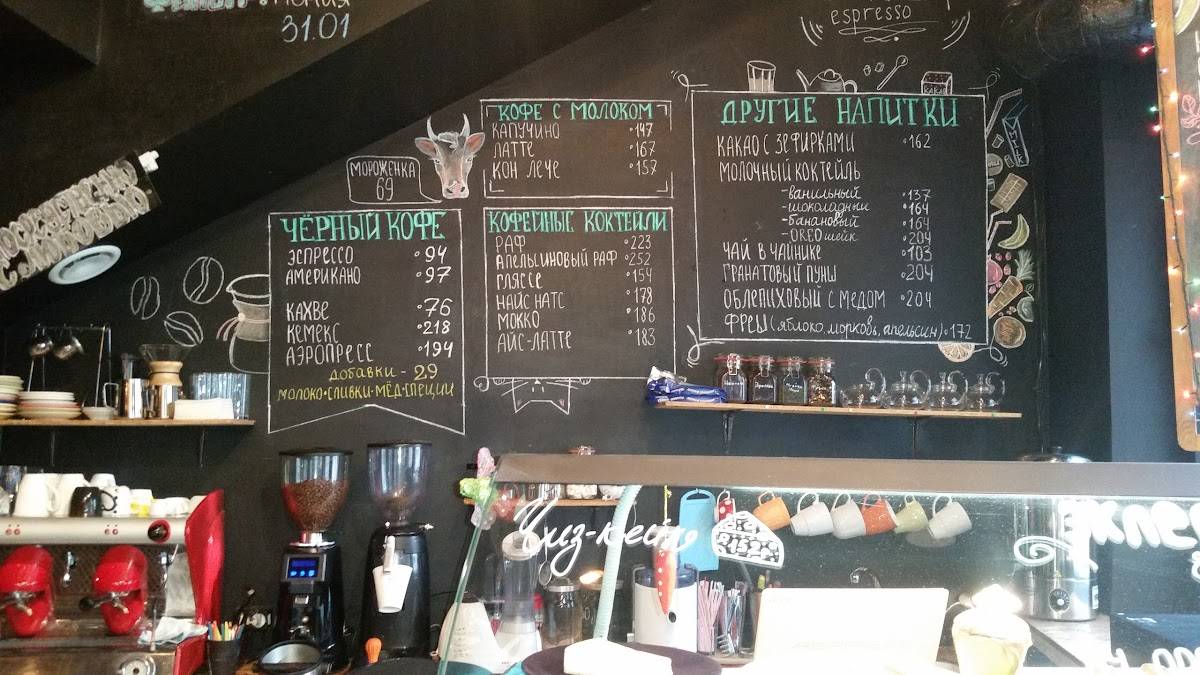 31.01
espresso
КОФЕ С МОЛОКОМ
КАПУЧИНО 147
ЛАТТЕ 167
КОН ЛЕЧЕ 157
МОРОЖЕНКА
69
ЧЁРНЫЙ КОФЕ
ЭСПРЕССО 94
АМЕРИКАНО 97
КАХВЕ 76
КЕМЕКС 218
АЭРОПРЕСС 194
ДОБАВКИ - 29
МОЛОКО•СЛИВКИ•МЁД•СПЕЦИИ
КОФЕЙНЫЕ КОКТЕЙЛИ
РАФ 223
АПЕЛЬСИНОВЫЙ РАФ 252
ГЛЯССЕ 154
НАЙС НАТС 178
МОККО 186
АЙС-ЛАТТЕ 183
ДРУГИЕ НАПИТКИ
КАКАО С ЗЕФИРКАМИ 162
МОЛОЧНЫЙ КОКТЕЙЛЬ
-ванильный 137
-шоколадный 164
-банановый 164
-OREO шейк 204
ЧАЙ В ЧАЙНИКЕ 103
ГРАНАТОВЫЙ ПУНШ 204
ОБЛЕПИХОВЫЙ С МЕДОМ 204
ФРЕШ (яблоко, морковь, апельсин) 172
Чиз-кейк